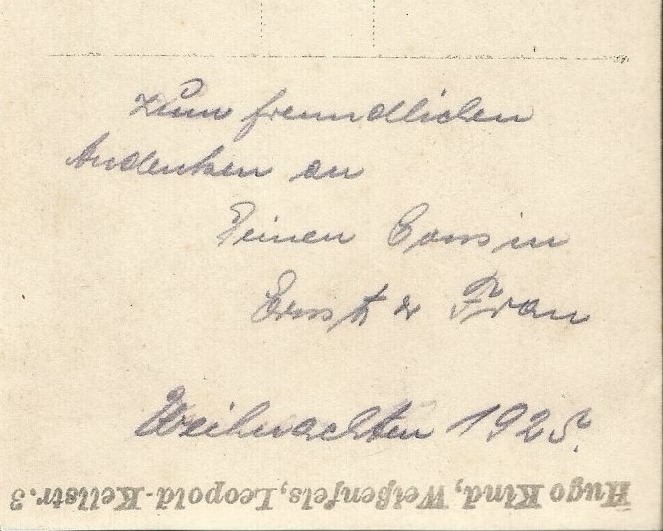 Zum freundlichen
Andenken an
Deinen Cousin
Ernst & Frau
Weihnachten 1925.
Hugo Kind, Weißenfels, Leopold-Kellstr. 3